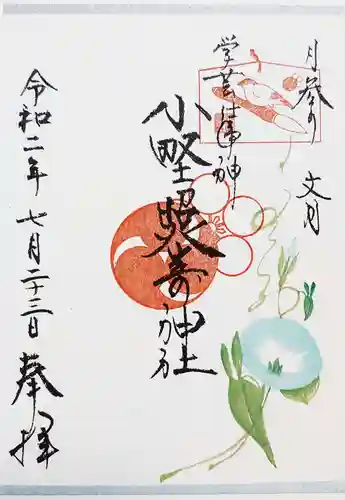 月参り 文月
学芸の神
小野照崎神社
令和二年 七月二十三日 奉拝